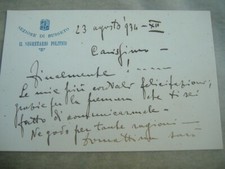 IL SEGRETARIO POLITICO
23 agosto 934 - XII
Carissimo -
Finalmente!
Le mie più cordiali felicitazioni,
grazie per la premura che ti sei
fatto di comunicarmelo -
Ne godo per tante ragioni -